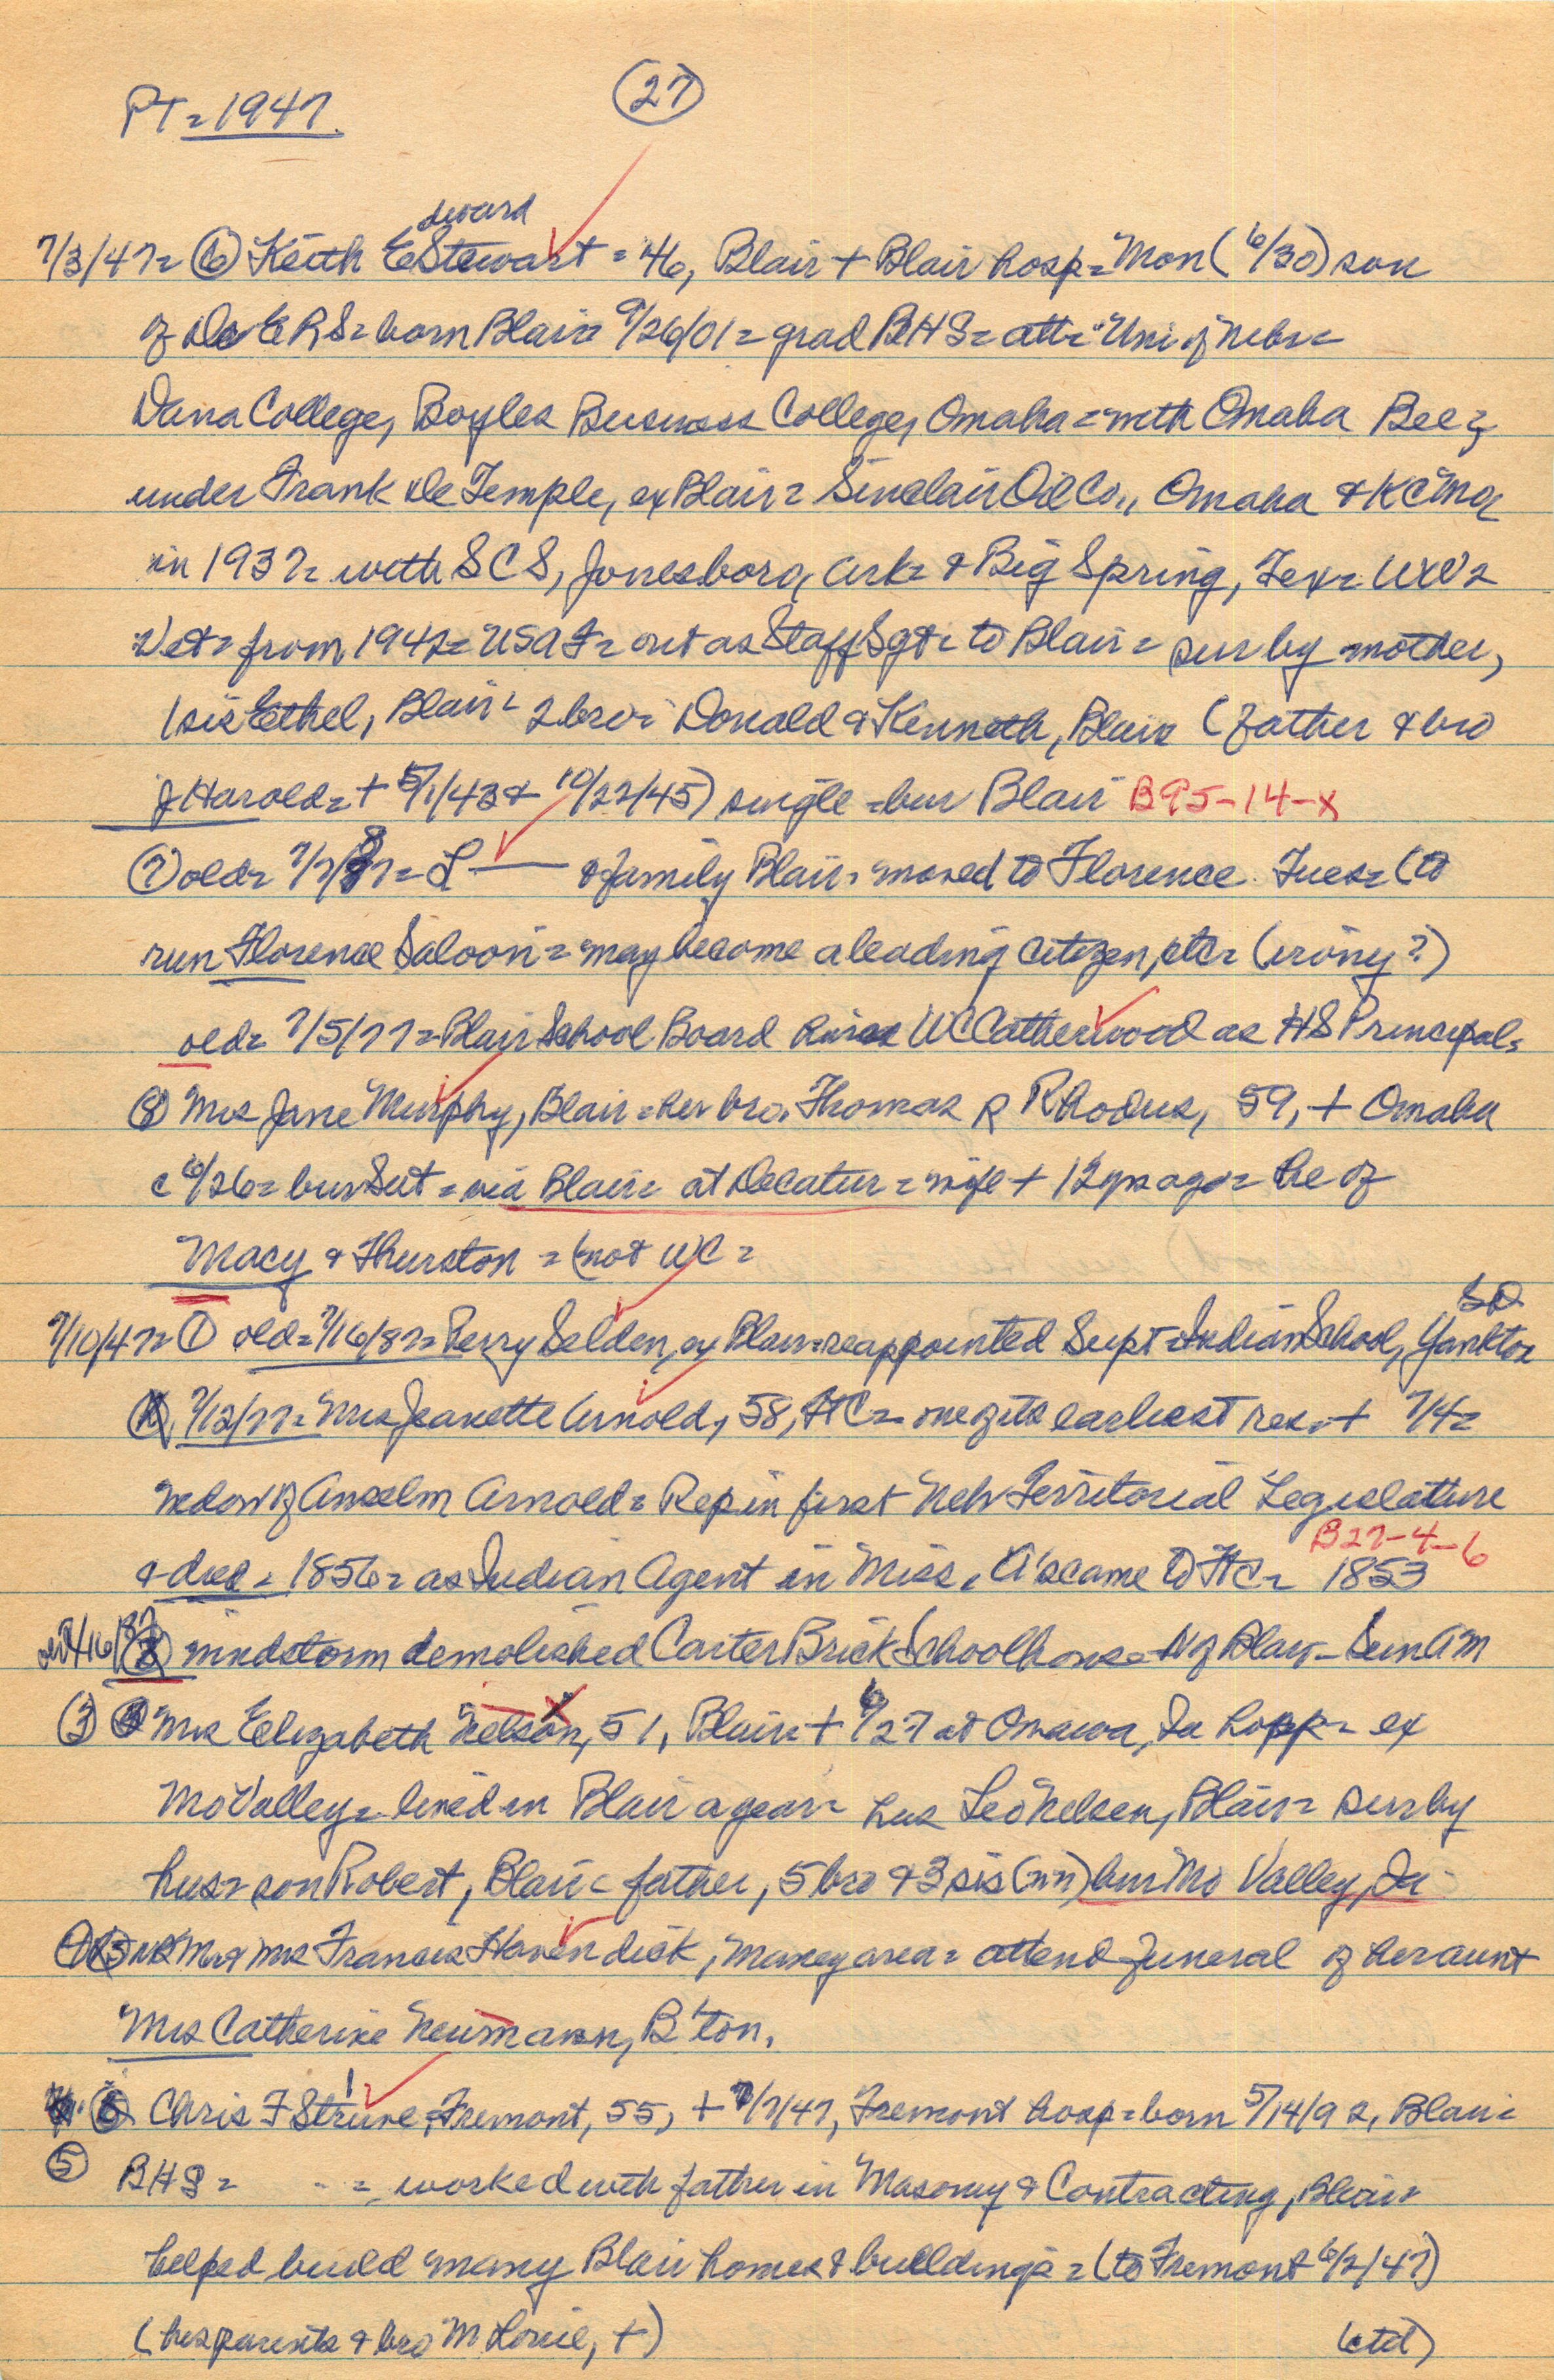 PT = 1947.
(27)
7/3/47 = (6) Keith Edward Stewart = 46, Blair + Blair hosp = Mon (6/30) son
of Dr E R S = born Blair = 9/26/01 = grad BHS = att = Uni of Nebr =
Dana College, Boyles Business College, Omaha = with Omaha Bee =
under Frank De Temple, ex Blair = Sinclair Oil Co., Omaha & KC Mo
in 1937 = with SCS, Jonesboro, Ark = & Big Spring, Tex = WW2
Vet = from 1942 = USAF = out as Staff Sgt = to Blair = sur by mother,
1 sis Ethel, Blair = 2 bro = Donald & Kenneth, Blair (father & bro
Harold = + 5/1/43 & 10/22/45) single = bur Blair B95-14-x
(7) old = 7/7/87 = L —— & family Blair = moved to Florence Tues = (to
run Florence Saloon = may become a leading citizen, etc = (irony?)
old = 7/5/77 = Blair School Board hires WC Catherwood as HS Principal =
(8) Mrs Jane Murphy, Blair = her bro. Thomas R Rhodus, 59, + Omaha
c 6/26 = bur Sat = via Blair = at Decatur = wife + 12 yrs ago = he of
Macy & Thurston = (not WC =
7/10/47 = (1) old = 7/16/87 = Perry Selden, ex Blair = reappointed Supt = Indian School, Yankton SD
7/12/77 = Mrs Jeanette Arnold, 58, FtC = one of its earliest res. + 7/4 =
widow of Anselm Arnold = Rep in first Neb Territorial Legislature
& died = 1856 = as Indian Agent in Miss. A's came to FtC = 1853 B27-4-6
old 7/16/87 (2) windstorm demolished Carter Brick Schoolhouse = N of Blair = Sun AM
(3) Mrs Elizabeth Nelson, 51, Blair + 6/27 at Onawa, Ia hosp = ex
Mo Valley = lived in Blair a year = hus Leo Nelsen, Blair = sur by
hus = son Robert, Blair = father, 5 bro & 3 sis (nn) bur Mo Valley, Ia
(4) Mr & Mrs Francis Havendick, area = attend funeral of her aunt
Mrs Catherine Neumann, B'ton.
Chris F Struve, Fremont, 55, + 7/7/47, Fremont hosp = born 5/14/92, Blair =
(5) BHS = = worked with father in Masonry & Contracting, Blair =
helped build many Blair homes & buildings = (to Fremont 6/2/47)
(his parents & bro M Louie, +) (ctd)